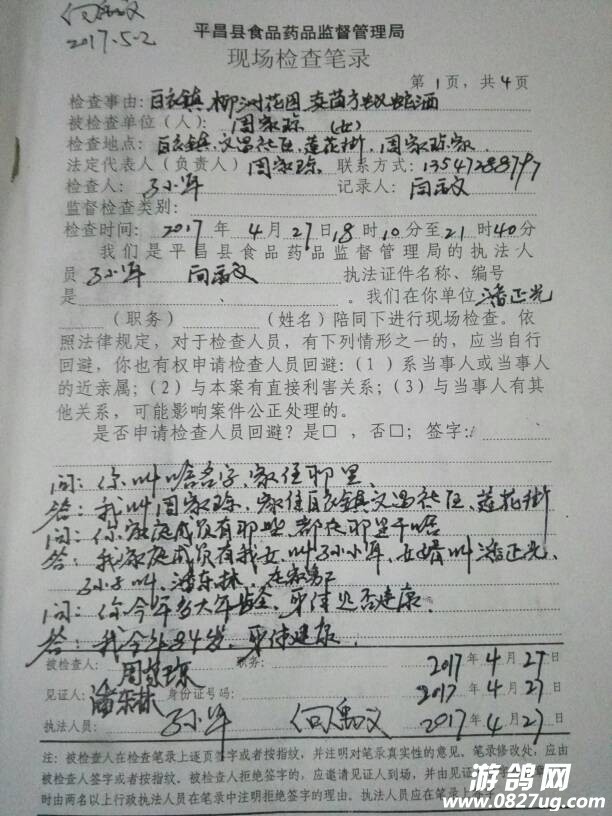 2017.5.2
平昌县食品药品监督管理局
现场检查笔录
第1页,共4页
检查事由:白衣镇
被检查单位(人):周家琼 (女)
检查地点:白衣镇文昌社区莲花街 周家琼家
法定代表人(负责人)周家琼 联系方式:
检查人: 记录人:
监督检查类别:
检查时间:2017年4月27日18时10分至21时40分
我们是平昌县食品药品监督管理局的执法人
员 执法证件名称、编号
是 。我们在你单位潘正光
(职务) (姓名)陪同下进行现场检查。依
照法律规定,对于检查人员,有下列情形之一的,应当自行
回避,你也有权申请检查人员回避:(1)系当事人或当事人
的近亲属;(2)与本案有直接利害关系;(3)与当事人有其
他关系,可能影响案件公正处理的。
是否申请检查人员回避?是□,否□;签字:
问:你叫啥名字,家住那里
答:我叫周家琼,家住白衣镇文昌社区,莲花街
问:你家庭成员有那些,都在那里干啥
答:我家庭成员有我女,叫 女婿叫潘正光,
叫潘东林,在家务工
问:你今年多大年龄,身体是否健康.
答:我今年84岁,身体健康.
被检查人:周家琼 职务: 2017年4月27日
见证人:潘东林 身份证号码: 2017年4月27日
执法人员: 2017年4月27日
注:被检查人在检查笔录上逐页签字或者按指纹,并注明对笔录真实性的意见。笔录修改处,应由
被检查人签字或者按指纹。被检查人拒绝签字的,应邀请见证人到场,并由见证
时由两名以上行政执法人员在笔录中注明拒绝签字的理由。执法人员应在笔录上
游鸽网
www.0827ug.com